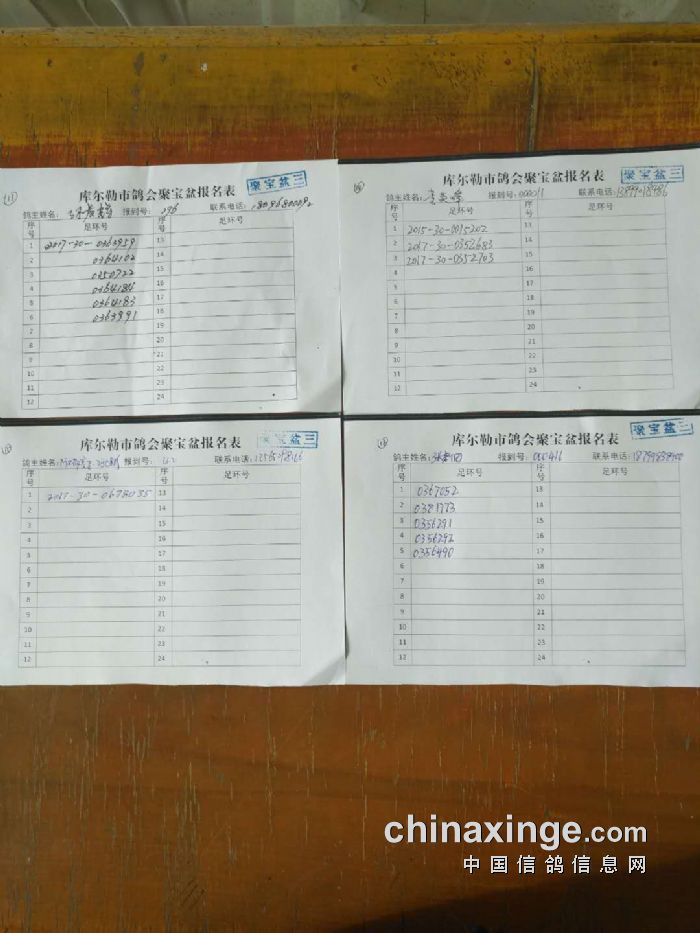 聚宝盆三
库尔勒市鸽会聚宝盆报名表
鸽主姓名: 报到号: 196 联系电话:
序号 足环号 序号 足环号
1 2017-30-0363959 13
2 0364102 14
3 0350722 15
4 0364184 16
5 0364183 17
6 0363991 18
7 19
8 20
9 21
10 22
11 23
12 24
聚宝盆三
库尔勒市鸽会聚宝盆报名表
鸽主姓名: 报到号: 联系电话:
序号 足环号 序号 足环号
1 2015-30-0015202 13
2 2017-30-0352683 14
3 2017-30-0352703 15
4 16
5 17
6 18
7 19
8 20
9 21
10 22
11 23
12 24
聚宝盆三
库尔勒市鸽会聚宝盆报名表
鸽主姓名: 报到号: 联系电话:
序号 足环号 序号 足环号
1 2017-30-0678035 13
2 14
3 15
4 16
5 17
6 18
7 19
8 20
9 21
10 22
11 23
12 24
聚宝盆三
库尔勒市鸽会聚宝盆报名表
鸽主姓名: 报到号: 联系电话:
序号 足环号 序号 足环号
1 0367052 13
2 0381773 14
3 0356291 15
4 0356292 16
5 0356490 17
6 18
7 19
8 20
9 21
10 22
11 23
12 24
chinaxinge.com
中国信鸽信息网